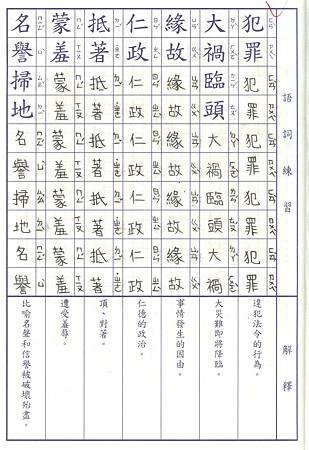 語詞練習 解釋
犯罪犯罪犯罪犯罪犯罪 違犯法令的行為。
大禍臨頭大禍臨頭大禍 大災難即將降臨。
緣故緣故緣故緣故緣故 事情發生的因由。
仁政仁政仁政仁政仁政 仁德的政治。
抵著抵著抵著抵著抵著 頂、對著。
蒙羞蒙羞蒙羞蒙羞蒙羞 遭受羞辱。
名譽掃地名譽掃地名譽 比喻名聲和信譽被破壞殆盡。